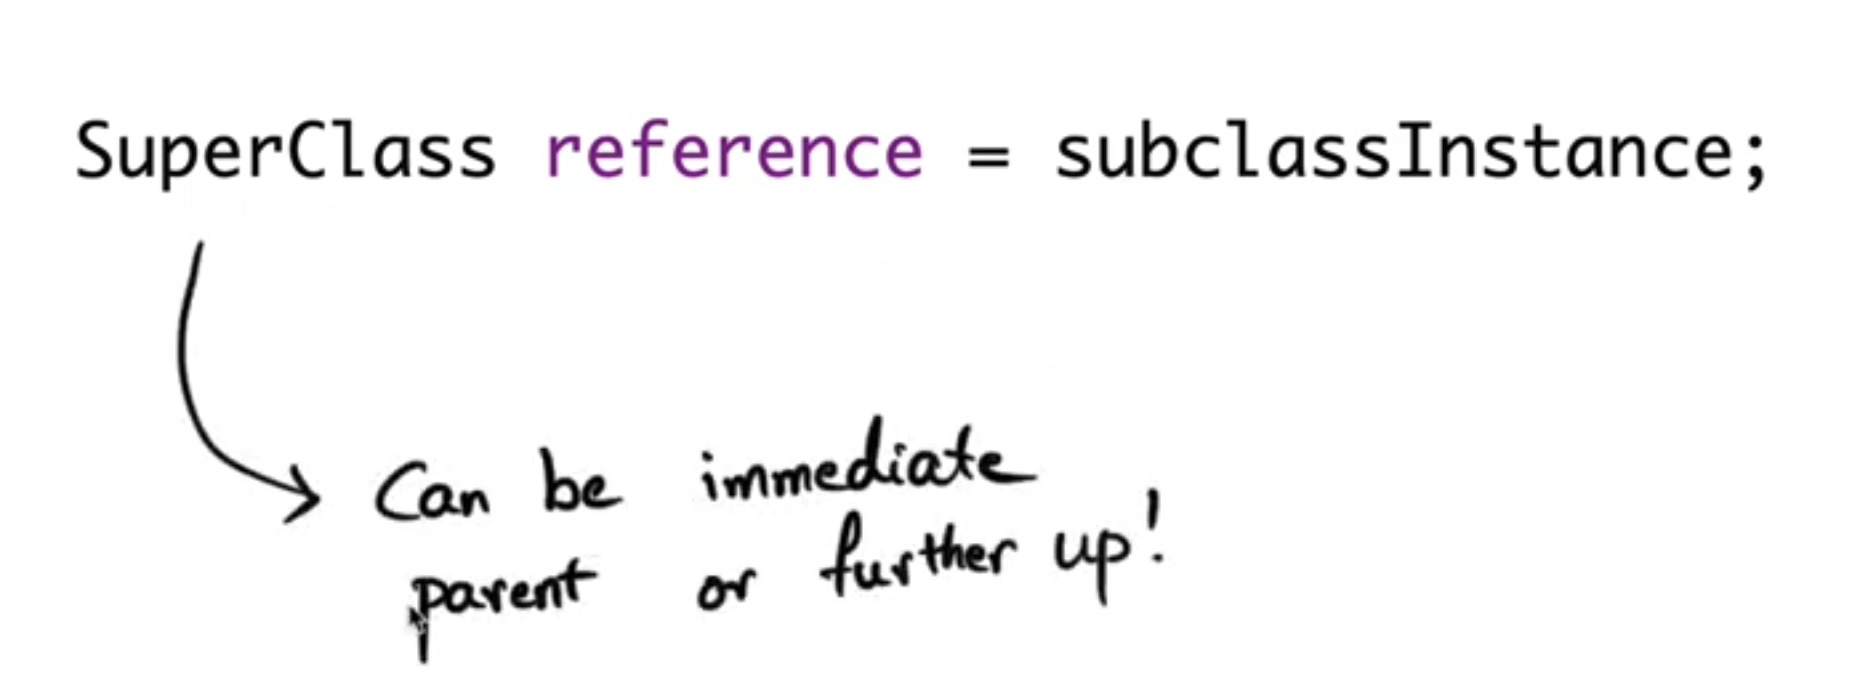 SuperClass reference = subclassInstance;
Can be immediate
parent or further up!